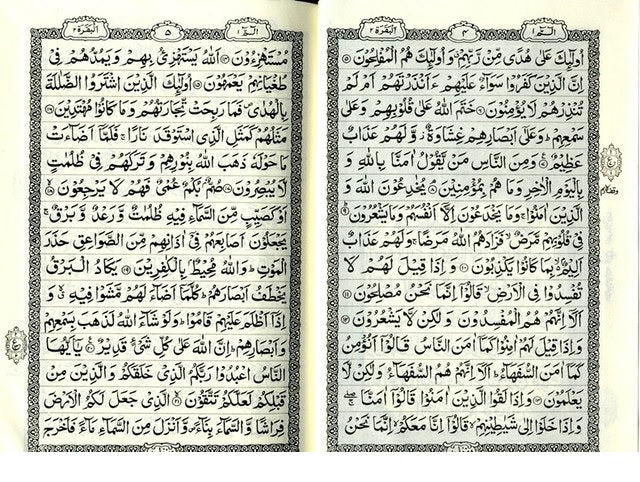 البقرة ٢
٤
الٓمّٓ ١
اُولٰٓئِكَ عَلٰى هُدًى مِّنْ رَّبِّهِمْ وَاُولٰٓئِكَ هُمُ الْمُفْلِحُوْنَ ٥
اِنَّ الَّذِيْنَ كَفَرُوْا سَوَآءٌ عَلَيْهِمْ ءَاَنْذَرْتَهُمْ اَمْ لَمْ
تُنْذِرْهُمْ لَا يُؤْمِنُوْنَ ٦ خَتَمَ اللّٰهُ عَلٰى قُلُوْبِهِمْ وَعَلٰى
سَمْعِهِمْ ؕ وَعَلٰٓى اَبْصَارِهِمْ غِشَاوَةٌ ؗ وَّلَهُمْ عَذَابٌ
عَظِيْمٌ ٧ وَمِنَ النَّاسِ مَنْ يَّقُوْلُ اٰمَنَّا بِاللّٰهِ وَ
بِالْيَوْمِ الْاٰخِرِ وَمَا هُمْ بِمُؤْمِنِيْنَ ٨ يُخٰدِعُوْنَ اللّٰهَ وَ
الَّذِيْنَ اٰمَنُوْا ۚ وَمَا يَخْدَعُوْنَ اِلَّآ اَنْفُسَهُمْ وَمَا يَشْعُرُوْنَ ٩
فِيْ قُلُوْبِهِمْ مَّرَضٌ ۙ فَزَادَهُمُ اللّٰهُ مَرَضًا ۚ وَلَهُمْ عَذَابٌ
اَلِيْمٌ ۢ بِمَا كَانُوْا يَكْذِبُوْنَ ١٠ وَاِذَا قِيْلَ لَهُمْ لَا
تُفْسِدُوْا فِى الْاَرْضِ ۙ قَالُوْٓا اِنَّمَا نَحْنُ مُصْلِحُوْنَ ١١
اَلَآ اِنَّهُمْ هُمُ الْمُفْسِدُوْنَ وَلٰكِنْ لَّا يَشْعُرُوْنَ ١٢
وَاِذَا قِيْلَ لَهُمْ اٰمِنُوْا كَمَآ اٰمَنَ النَّاسُ قَالُوْٓا اَنُؤْمِنُ
كَمَآ اٰمَنَ السُّفَهَآءُ ؕ اَلَآ اِنَّهُمْ هُمُ السُّفَهَآءُ وَلٰكِنْ لَّا
يَعْلَمُوْنَ ١٣ وَاِذَا لَقُوا الَّذِيْنَ اٰمَنُوْا قَالُوْٓا اٰمَنَّا ۖۚ
وَاِذَا خَلَوْا اِلٰى شَيٰطِيْنِهِمْ ۙ قَالُوْٓا اِنَّا مَعَكُمْ ۙ اِنَّمَا نَحْنُ
البقرة ٢
٥
الٓمّٓ ١
مُسْتَهْزِءُوْنَ ١٤ اَللّٰهُ يَسْتَهْزِئُ بِهِمْ وَيَمُدُّهُمْ فِيْ
طُغْيَانِهِمْ يَعْمَهُوْنَ ١٥ اُولٰٓئِكَ الَّذِيْنَ اشْتَرَوُا الضَّلٰلَةَ
بِالْهُدٰى ۪ فَمَا رَبِحَتْ تِّجَارَتُهُمْ وَمَا كَانُوْا مُهْتَدِيْنَ ١٦
مَثَلُهُمْ كَمَثَلِ الَّذِى اسْتَوْقَدَ نَارًا ۚ فَلَمَّآ اَضَآءَتْ
مَا حَوْلَهٗ ذَهَبَ اللّٰهُ بِنُوْرِهِمْ وَتَرَكَهُمْ فِيْ ظُلُمٰتٍ
لَّا يُبْصِرُوْنَ ١٧ صُمٌّۢ بُكْمٌ عُمْيٌ فَهُمْ لَا يَرْجِعُوْنَ ١٨
اَوْ كَصَيِّبٍ مِّنَ السَّمَآءِ فِيْهِ ظُلُمٰتٌ وَّرَعْدٌ وَّبَرْقٌ ۚ
يَجْعَلُوْنَ اَصَابِعَهُمْ فِيْٓ اٰذَانِهِمْ مِّنَ الصَّوَاعِقِ حَذَرَ
الْمَوْتِ ؕ وَاللّٰهُ مُحِيْطٌۢ بِالْكٰفِرِيْنَ ١٩ يَكَادُ الْبَرْقُ
يَخْطَفُ اَبْصَارَهُمْ ؕ كُلَّمَآ اَضَآءَ لَهُمْ مَّشَوْا فِيْهِ ۙ وَ
اِذَآ اَظْلَمَ عَلَيْهِمْ قَامُوْا ؕ وَلَوْ شَآءَ اللّٰهُ لَذَهَبَ بِسَمْعِهِمْ
وَاَبْصَارِهِمْ ؕ اِنَّ اللّٰهَ عَلٰى كُلِّ شَيْءٍ قَدِيْرٌ ٢٠ يٰٓاَيُّهَا
النَّاسُ اعْبُدُوْا رَبَّكُمُ الَّذِيْ خَلَقَكُمْ وَالَّذِيْنَ مِنْ
قَبْلِكُمْ لَعَلَّكُمْ تَتَّقُوْنَ ٢١ الَّذِيْ جَعَلَ لَكُمُ الْاَرْضَ
فِرَاشًا وَّالسَّمَآءَ بِنَآءً ۪ وَّاَنْزَلَ مِنَ السَّمَآءِ مَآءً فَاَخْرَجَ